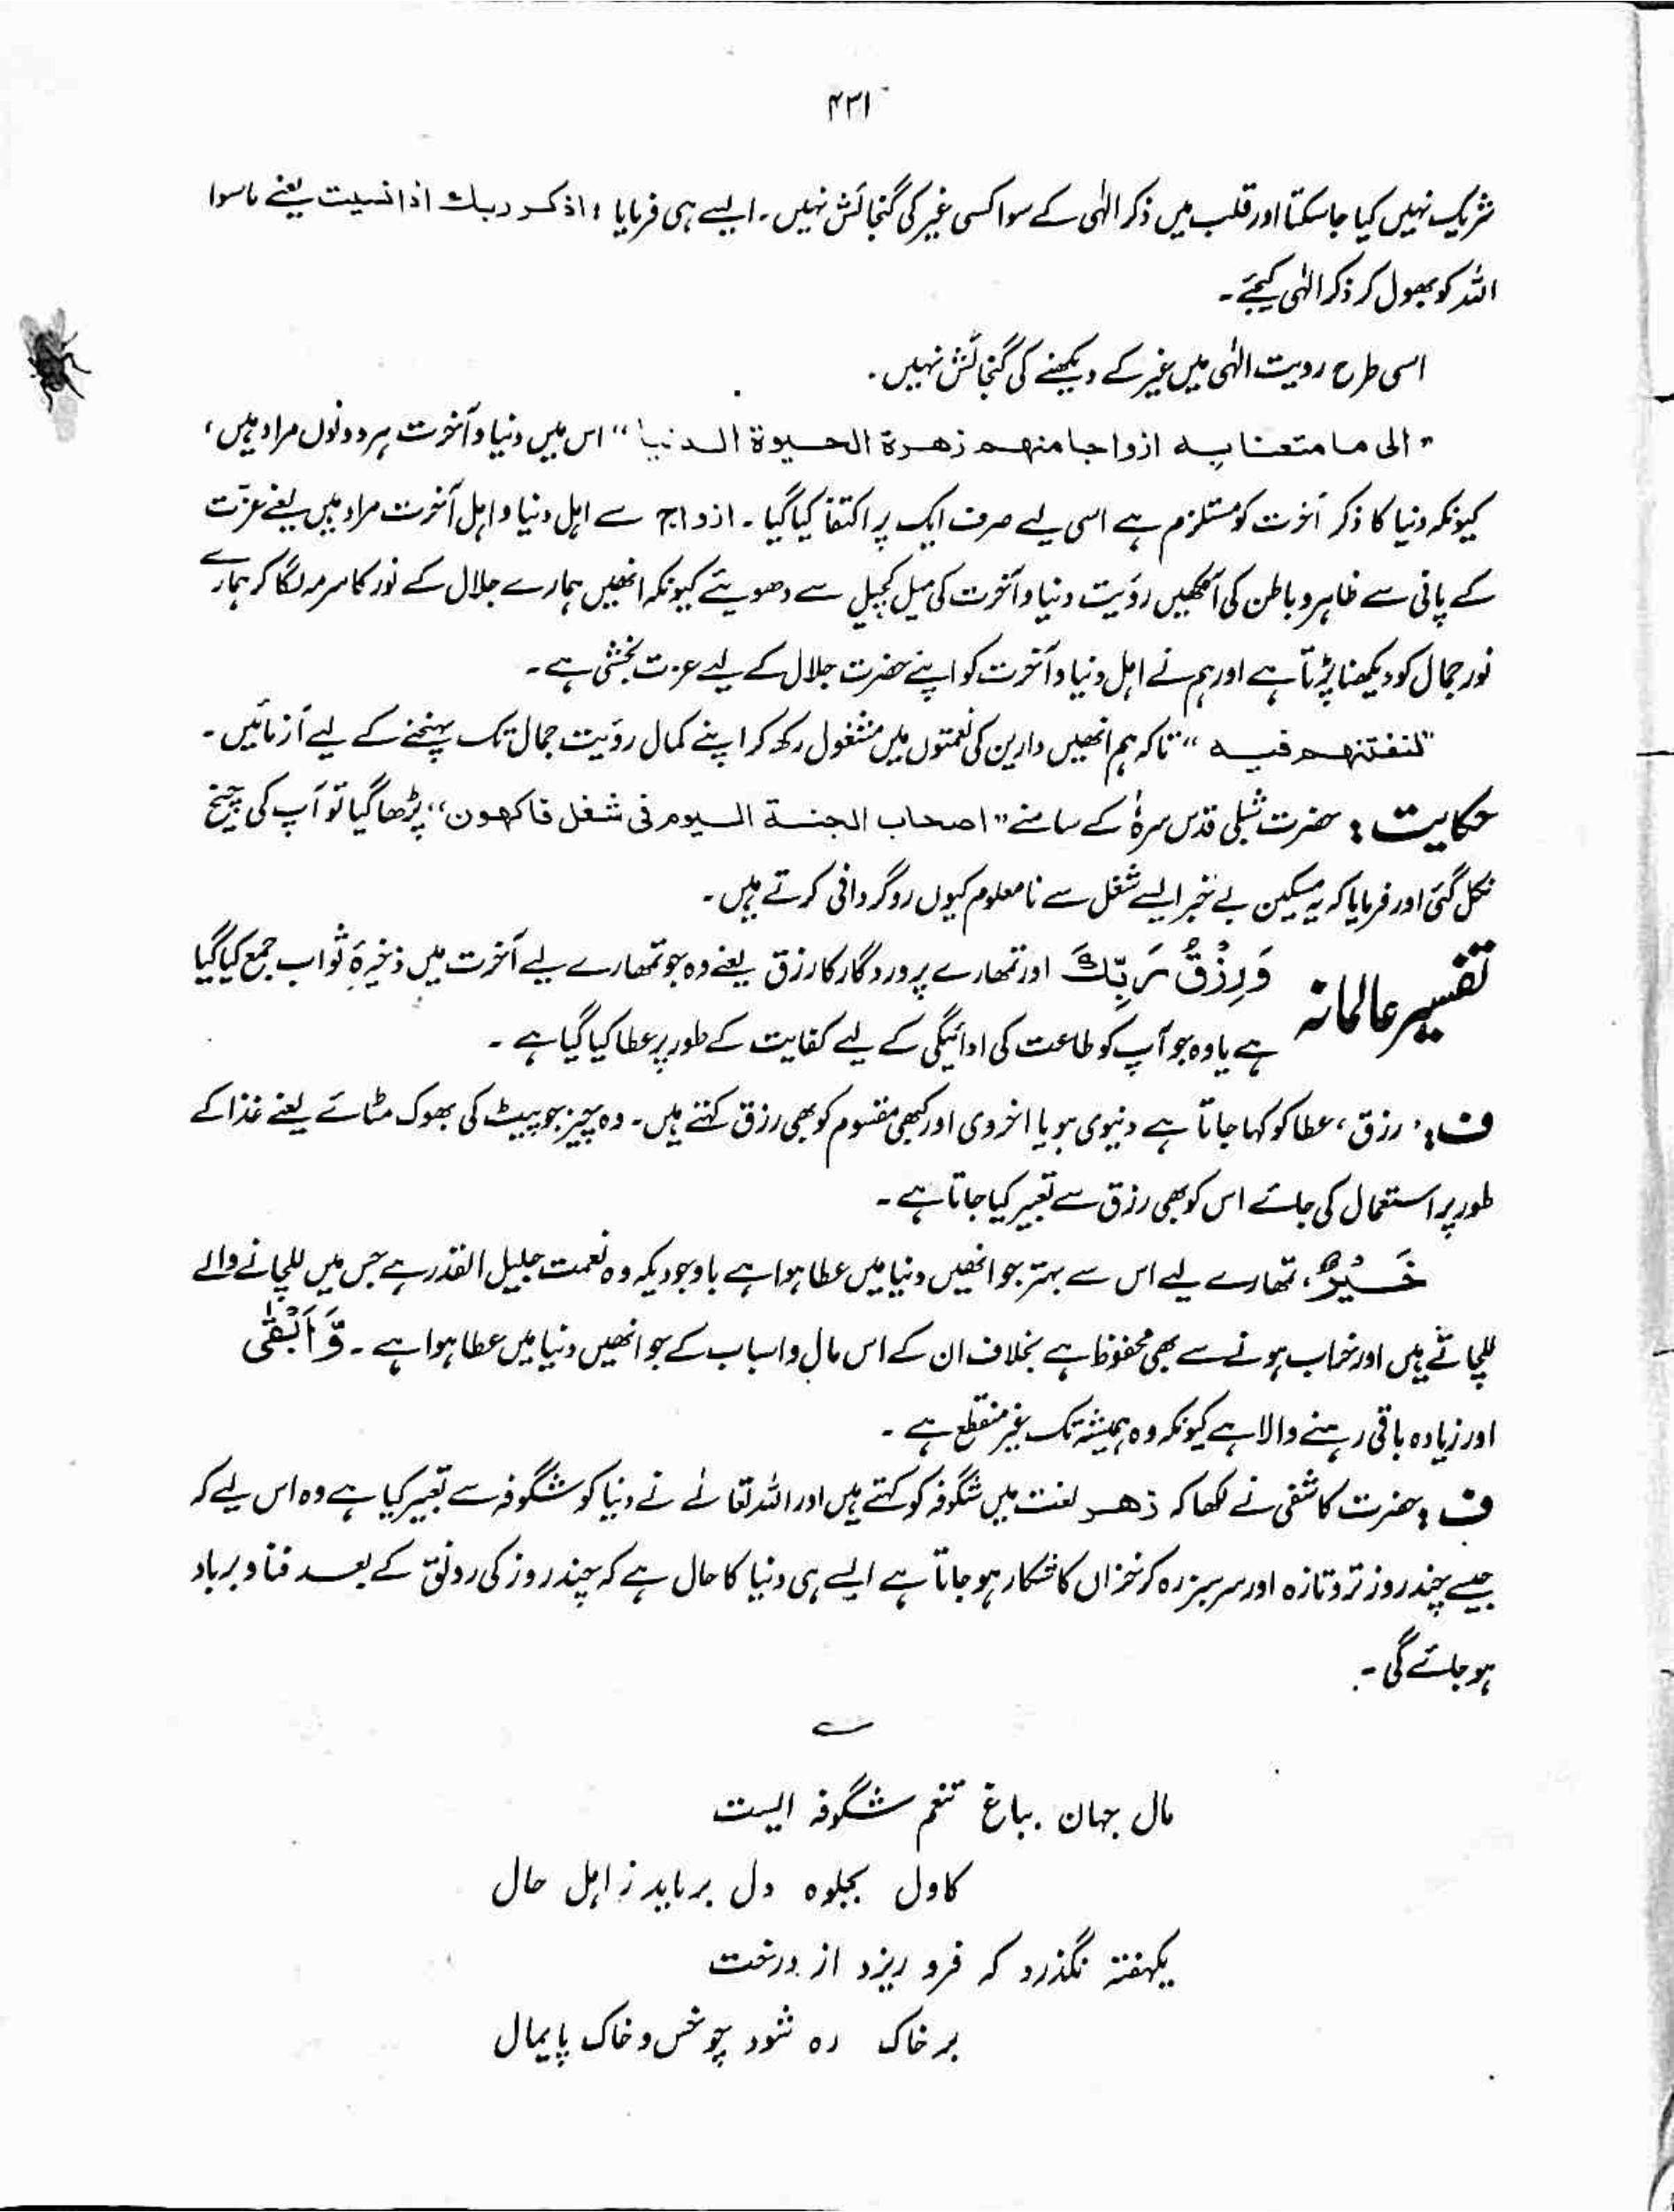 ۴۳۱
شریک نہیں کیا جا سکتا اور قلب میں ذکر الٰہی کے سوا کسی غیر کی گنجائش نہیں۔ ایسے ہی فرمایا : اذکر ربك اذا نسیت یعنے ماسوا
اللہ کو بھول کر ذکر الٰہی کیجئے۔
اسی طرح رویت الٰہی میں غیر کے دیکھنے کی گنجائش نہیں۔
"الی ما متعنا بہ ازواجا منھم زھرۃ الحیوۃ الدنیا" اس میں دنیا و آخرت ہر دونوں مراد ہیں،
کیونکہ دنیا کا ذکر آخرت کو مستلزم ہے اسی لیے صرف ایک پر اکتفا کیا گیا۔ ازواج سے اہل دنیا و اہل آخرت مراد ہیں یعنے عزّت
کے پانی سے ظاہر و باطن کی آنکھیں روَیت دنیا و آخرت کی میل کچیل سے دھویئے کیونکہ انھیں ہمارے جلال کے نور کا سرمہ لگا کر ہمارے
نور جمال کو دیکھنا پڑتا ہے اور ہم نے اہل دنیا و آخرت کو اپنے حضرت جلال کے لیے عزت بخشی ہے۔
"لنفتنھم فیہ" تاکہ ہم انھیں دارین کی نعمتوں میں مشغول رکھ کر اپنے کمال روَیت جمال تک پہنچنے کے لیے آزمائیں۔
حکایت : حضرت شبلی قدس سرہٗ کے سامنے "اصحاب الجنۃ الیوم فی شغل فاکھون" پڑھا گیا تو آپ کی چیخ
نکل گئی اور فرمایا کہ یہ مسکین بے خبر ایسے شغل سے نامعلوم کیوں روگردانی کرتے ہیں۔
تفسیر عالمانہ وَرِزْقُ رَبِّكَ اور تمھارے پروردگار کا رزق یعنے وہ جو تمھارے لیے آخرت میں ذخیرۂ ثواب جمع کیا گیا
ہے یا وہ جو آپ کو طاعت کی ادائیگی کے لیے کفایت کے طور پر عطا کیا گیا ہے۔
ف : رزق، عطا کو کہا جاتا ہے دنیوی ہو یا اخروی اور کبھی مقسوم کو بھی رزق کہتے ہیں۔ وہ چیز جو پیٹ کی بھوک مٹائے یعنے غذا کے
طور پر استعمال کی جائے اس کو بھی رزق سے تعبیر کیا جاتا ہے۔
خَیْرٌ، تمھارے لیے اس سے بہتر جو انھیں دنیا میں عطا ہوا ہے باوجودیکہ وہ نعمت جلیل القدر ہے جس میں للچانے والے
للچاتے ہیں اور خراب ہونے سے بھی محفوظ ہے بخلاف ان کے اس مال و اسباب کے جو انھیں دنیا میں عطا ہوا ہے۔ وَّاَبْقٰی
اور زیادہ باقی رہنے والا ہے کیونکہ وہ ہمیشہ تک غیر منقطع ہے۔
ف : حضرت کاشفی نے لکھا کہ زھر لغت میں شگوفہ کو کہتے ہیں اور اللہ تعالٰے نے دنیا کو شگوفہ سے تعبیر کیا ہے وہ اس لیے کہ
جیسے چند روز تروتازہ اور سرسبز رہ کر خزاں کا شکار ہو جاتا ہے ایسے ہی دنیا کا حال ہے کہ چند روز کی رونق کے بعد فنا و برباد
ہو جائے گی۔
؎
مال جہان بباغ تنعم شگوفہ ایست
کاول بجلوہ دل برباید ز اہل حال
یکہفتہ نگذرد کہ فرو ریزد از درخت
بر خاک رہ شود چو خس و خاک پایمال